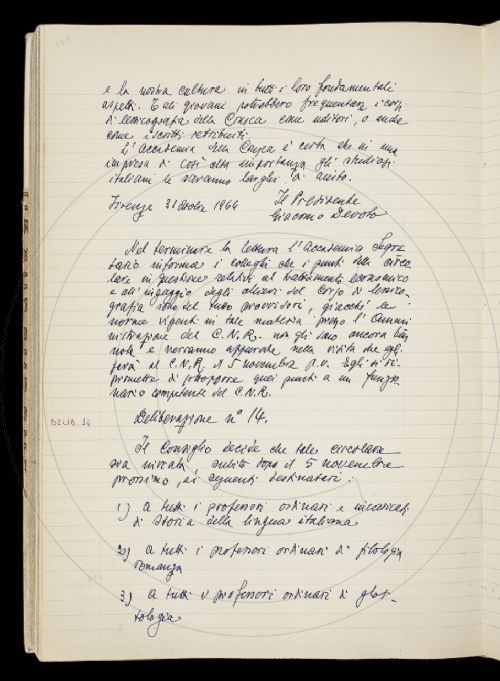 e la nostra cultura in tutti i loro fondamentali
aspetti. Tali giovani potrebbero frequentare i corsi
di lessicografia della Crusca come uditori, o anche
come iscritti retribuiti.
L'Accademia della Crusca è certa che in una
impresa di così alta importanza gli studiosi
italiani le saranno larghi di aiuto.
Firenze 31 ottobre 1964 Il Presidente
Giacomo Devoto
Nel terminare la lettura l'Accademico Segre
tario informa i colleghi che i punti della circo
lare in questione relativi al trattamento economico
e all'ingaggio degli allievi del Corso di lessico-
grafia sono del tutto provvisori, giacché le
norme vigenti in tale materia presso l'Ammi
nistrazione del C.N.R. non gli sono ancora ben
note e verranno appurate nella visita che egli
farà al C.N.R. il 5 novembre p.v. Egli si ri-
promette di sottoporre quei punti a un funzio
nario competente del C.N.R.
DELIB. 14
Deliberazione n° 14.
Il Consiglio decide che tale circolare
sia inviata, subito dopo il 5 novembre
prossimo, ai seguenti destinatari:
1) a tutti i professori ordinari e incaricati
di Storia della lingua italiana
2) a tutti i professori ordinari di filologia
romanza
3) a tutti i professori ordinari di glot-
tologia